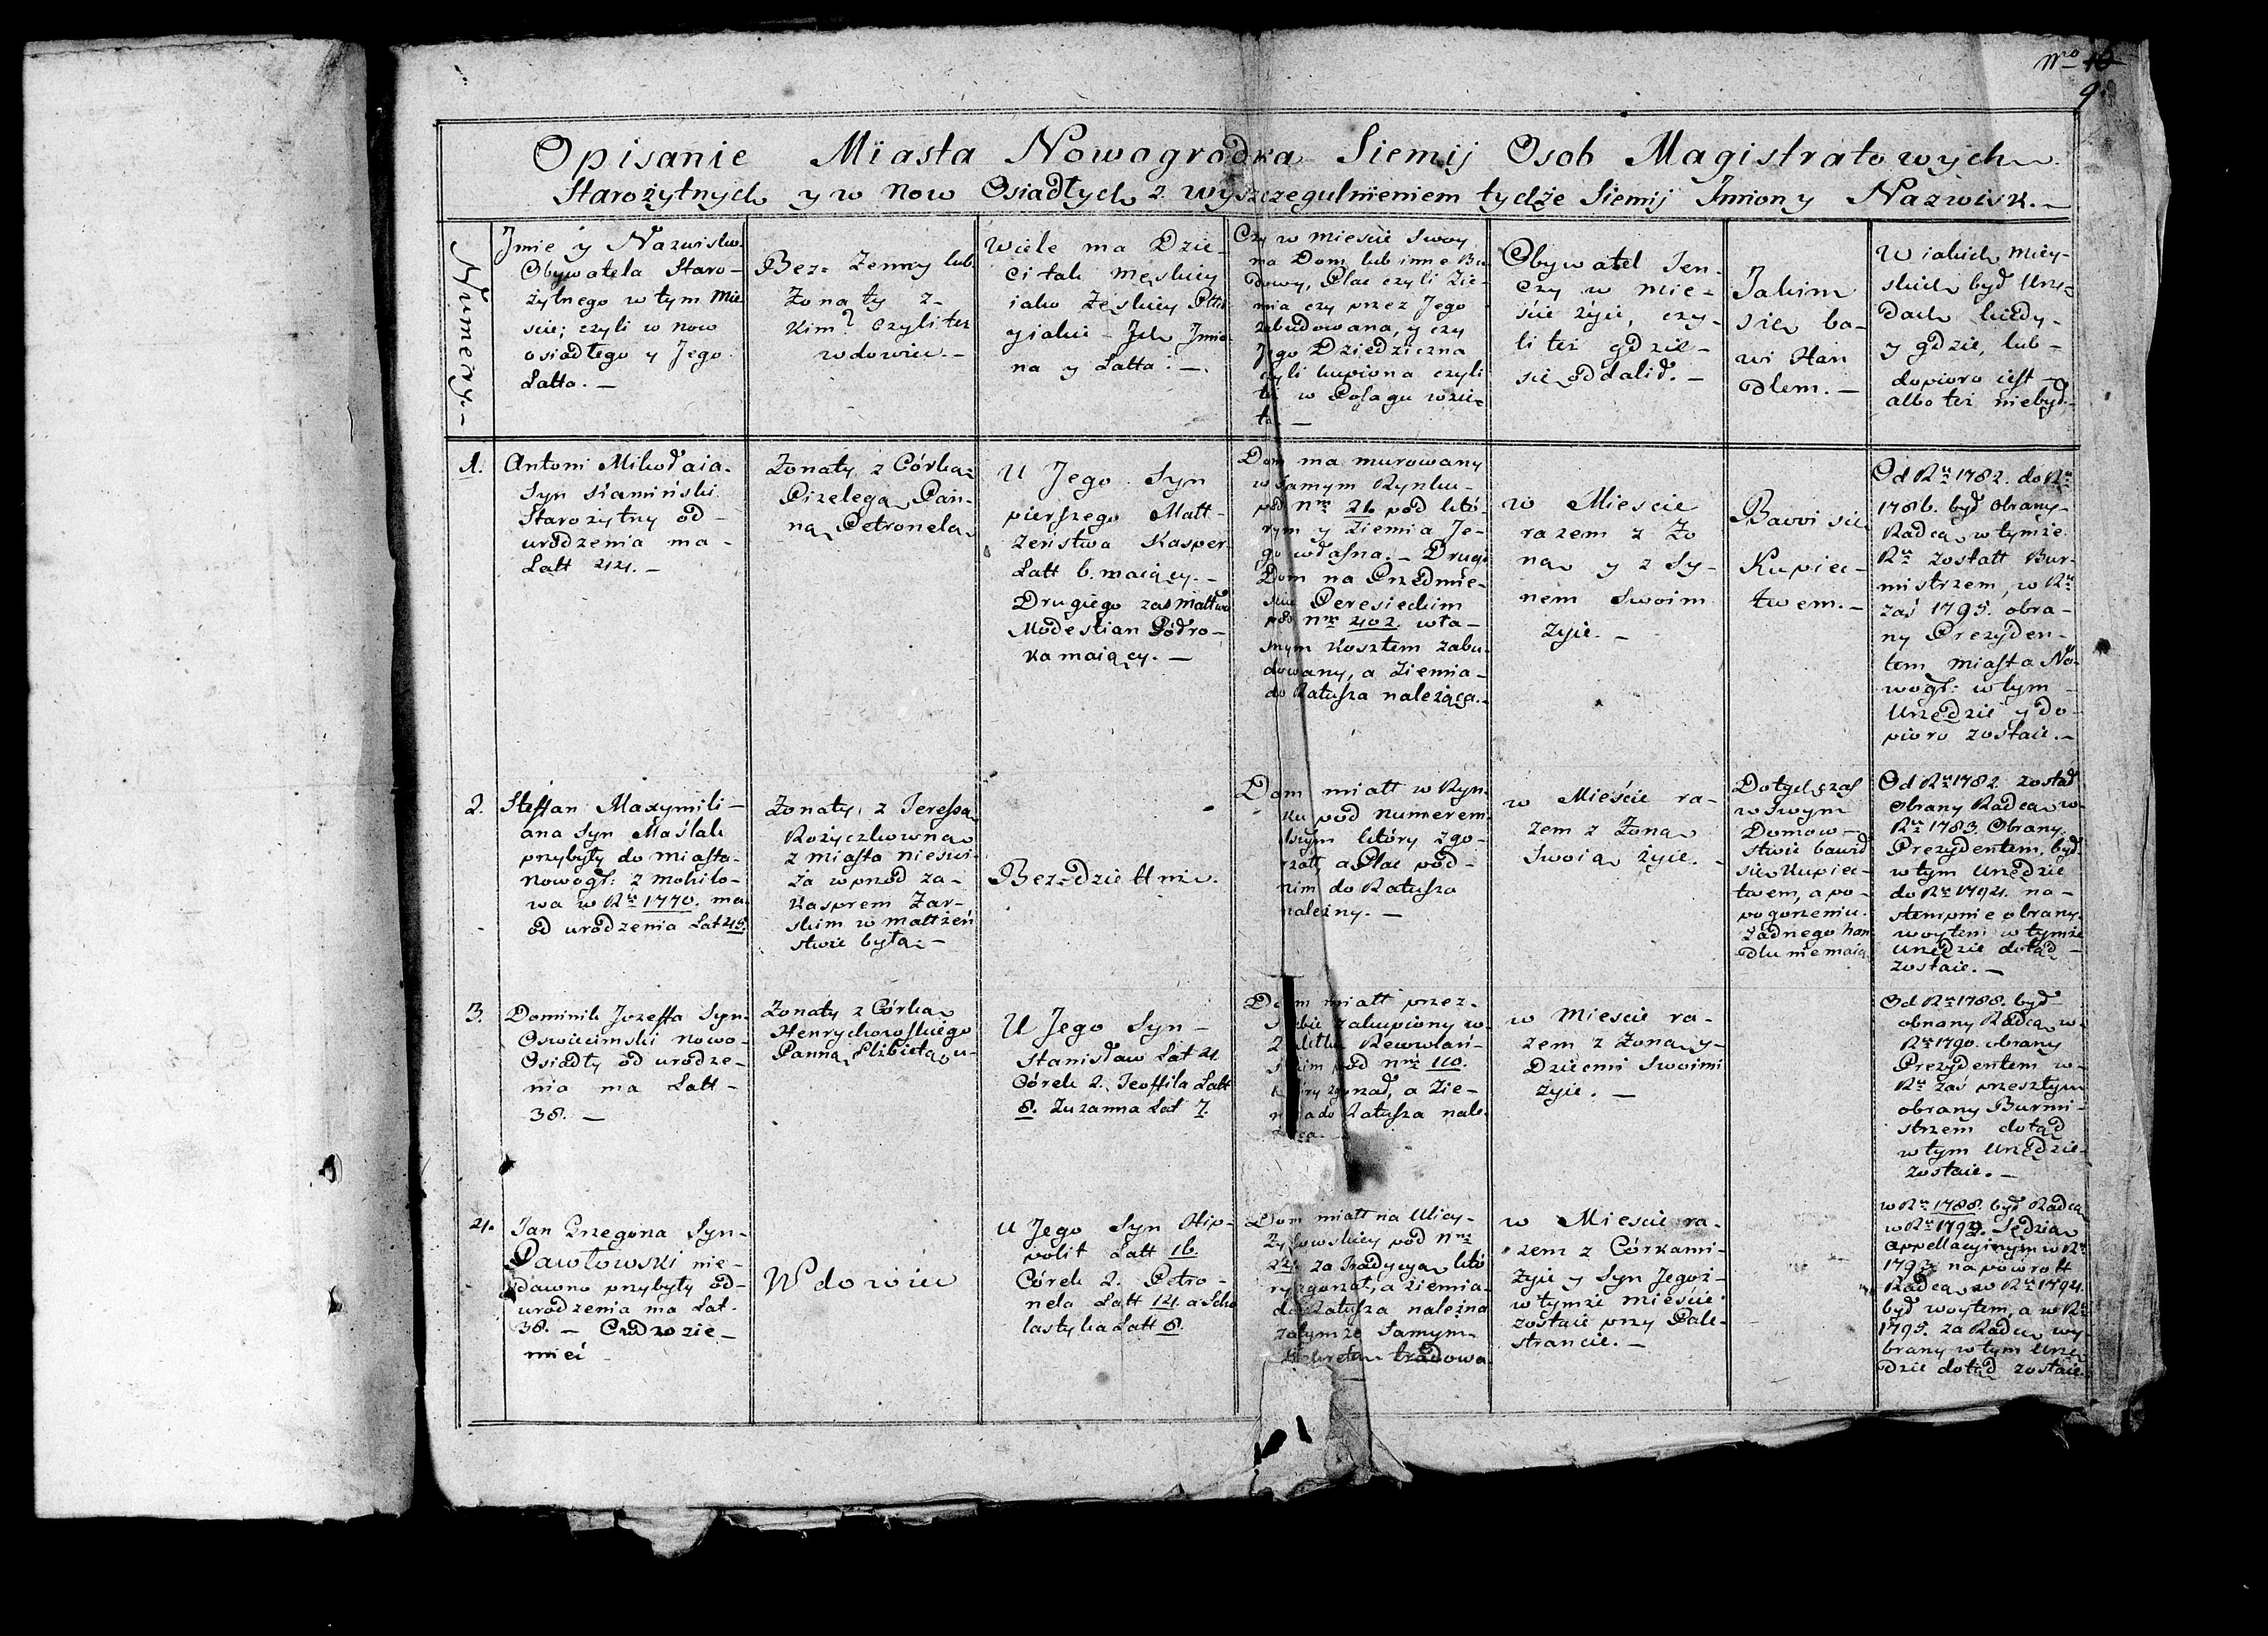 Nro 10
9.
Opisanie Miasta Nowogrodka Siemij Osob Magistratowych
Starożytnych y w now Osiadłych z wyszczegulnieniem tychże Siemij Jmiony Nazwisk.
Numery.
Jmie y Nazwisko
Obywatela Staro-
żytnego w tym Mie
scie; czyli w now
osiadłego y Jego
Latta. —
Bez= Zenny lub
Zonaty z-
kim? czyli tez
wdowiec. —
Wiele ma Dzie-
ci tak męskiey
iako Zeskiey Płci
y iakie - Jch Jmio-
na y Latta: —
Czy w mieście Swoy
ma Dom lub inne Bu-
dowy, Plac czyli Zie-
mia czy przez Jego
zabudowana, y czy
Jego Dziedziczna
czyli kupiona czyli
też w Posagu wzie-
ta. —
Obywatel Ten-
czy w mie-
ście żyie, czy-
li też gdzie-
sie oddalił. —
Jakim
sie ba-
wi Han
dlem. —
W iakich Miey-
skich był Urzę-
dach kiedy-
y gdzie, lub-
dopioro iest-
albo też niebył.
1.
Antoni Mikołaia
Syn Kamiński
Starożytny od-
urodzenia ma-
Latt 44. —
Zonaty z Córką
Pizelega Pan-
ną Petronelą
U Jego Syn
pierszego Matt-
żeństwa Kasper
Latt 6. maiący. —
Drugiego zas Małtwa
Modestian Półro-
ka maiący. —
Dom ma murowany
w samym Rynku-
pod Nrm 26 pod któ-
rym y Ziemia Je-
go własna. — Drugi
Dom na Przedmie-
sciu Peresieckim
pod Nrm 402. wła-
snym kosztem zabu-
dowany, a Ziemia-
do Ratusza należąca. —
w Miescie
razem z Zo
ną y z Sy-
nem Swoim
żyie. —
Bawi sie
Kupiec-
twem. —
Od Ru 1782. do Ru
1786. był obrany
Radcą w tymże
Ru zostatt Bur-
mistrzem, w Ru
zaś 1795. obra-
ny Prezyden-
tem miasta No-
wogr: w tym-
Urzędzie y do-
pioro zostaie. —
2.
Steffan Maxymili-
ana Syn Maślak
przybyły do miasta
Nowogr: z Mohilo-
wa w Ru 1770. ma
od urodzenia Lat 45.
Zonaty, z Teressą
Rożyczkowną
z miasta Nieswi-
ża wprzod za-
Kasprem Zar-
skim w małżeń
stwie była. —
Bezdziettnie.
Dom miatt w Ryn-
ku pod Numerem
który zgo-
rzatt, a Plac pod-
nim do Ratusza
należny. —
w Mieście ra-
zem z Zoną
Swoią żyie. -
Dotychczas
w swym
Domow-
stwie bawił
sie Kupiec-
twem, a po-
pogorzeniu
żadnego han
dlu niemaią
Od Ru 1782. został
obrany Radcą w-
Ru 1783. Obrany
Prezydentem, był
w tym Urzędzie
do Ru 1794. na-
stempnie obrany
woytem w tymże
Urzędzie dotąd-
zostaie. —
3.
Dominik Jozeffa Syn
Oswiecimski nowo-
Osiadły od urodze-
nia ma Latt-
38. —
Zonaty z Córką
Henrychowskiego
Panną Elżbietą
U Jego Syn-
Stanisław Lat 4.
Córek 2. Teoffila Latt
8. Zuzanna Lat 7.
Dom miatt przez-
siebie zakupiony w-
skim pod Nrm 110.
który zgorzał, a Zie-
mia do Ratusza nale-
w Miescie ra-
zem z Zoną y-
Dziecmi Swoimi
żyie. —
Od Ru 1788. był
obrany Radcą w-
Ru 1790. obrany
Prezydentem w-
Ru zaś przeszłym
obrany Burmi-
strzem dotąd
w tym Urzędzie-
zostaie. —
4.
Jan Grzegorza Syn-
Pawłowski nie-
dawno przybyły od-
urodzenia ma Lat.
38. — Cudzozie-
miec
Wdowiec
U Jego Syn Hip-
polit Latt 16.
Córek 2. Petro-
nela Latt 14. a Scho
lastyka Latt 8.
Dom miatt na Ulicy-
pod Nrm
za Tradycyą któ
ry zgorzał, a Ziemia
do Ratusza należna
za tymże Samym
tradowa
w Miescie ra-
zem z Córkami-
żyie y Syn Jegoż-
w tymże mieście
zostaie przy Pale-
strancie. —
w Ru 1788. był Radcą
w Ru 1792. Sędzią
Appellacyinym w Ru
1793 na powrott
Radcą w Ru 1794.
był woytem, a w Ru
1795. za Radcę wy-
brany w tym Urzę
dzie dotąd zostaie.